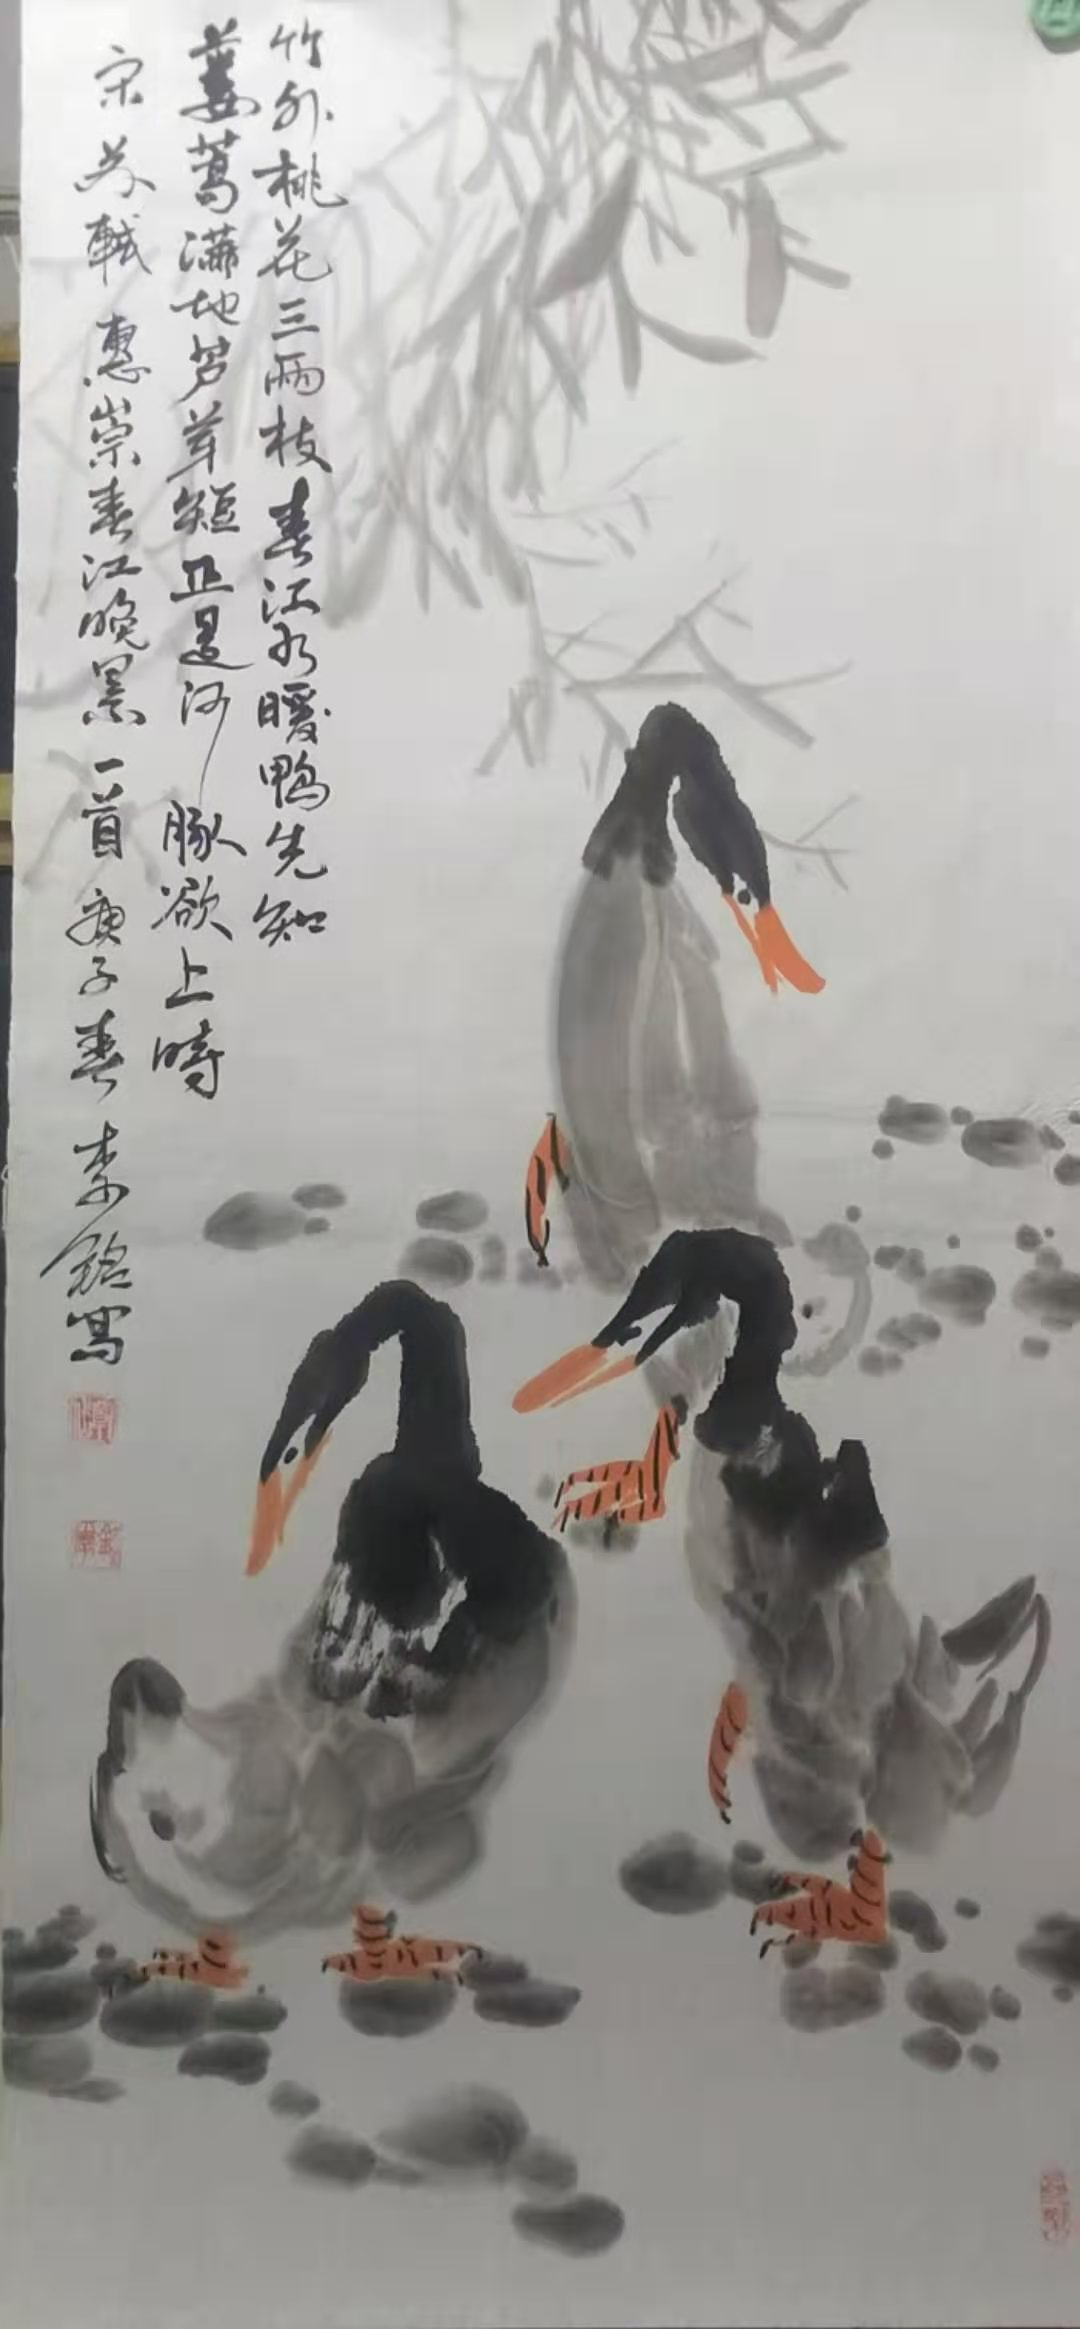 竹外桃花三兩枝春江水暖鴨先知
蔞蒿滿地芦芽短正是河豚欲上時
宋苏軾惠崇春江晚景一首庚子春李銘寫